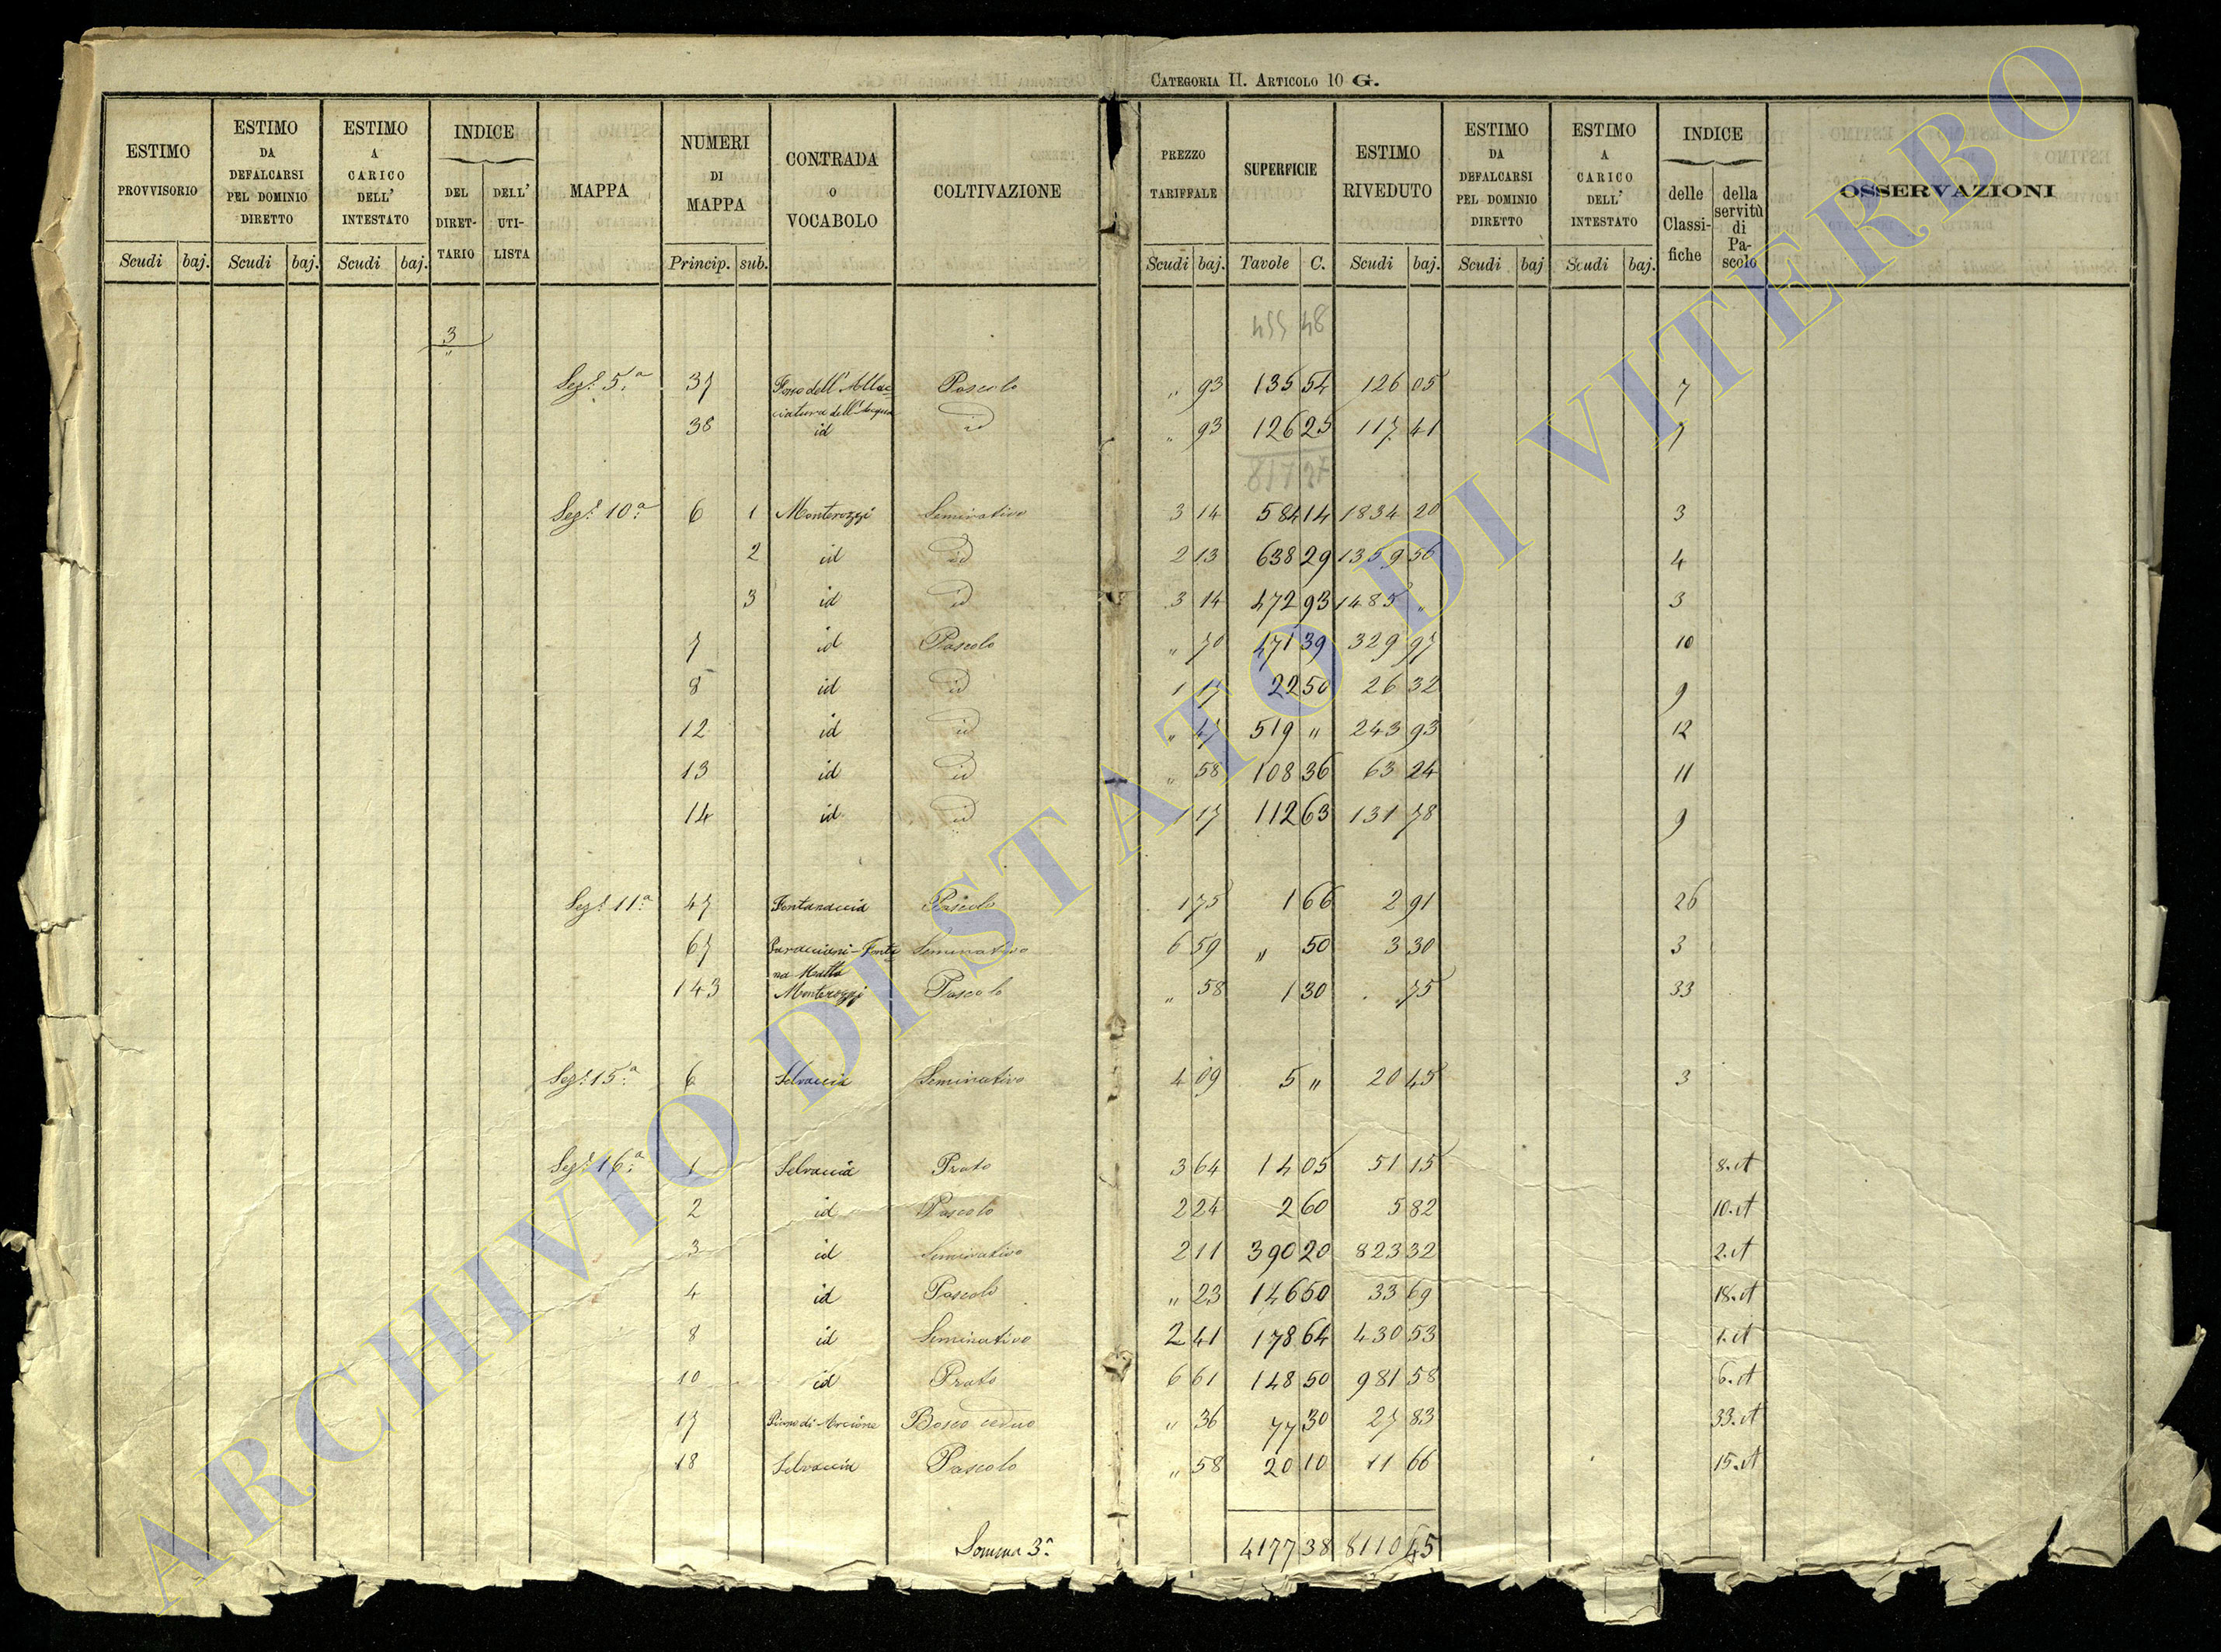 CATEGORIA II. ARTICOLO 10 G.
ESTIMO PROVVISORIO | ESTIMO DA DEFALCARSI PEL DOMINIO DIRETTO | ESTIMO A CARICO DELL' INTESTATO | INDICE DEL DIRET-TARIO | DELL' UTI-LISTA | MAPPA | NUMERI DI MAPPA | CONTRADA O VOCABOLO | COLTIVAZIONE | PREZZO TARIFFALE | SUPERFICIE | ESTIMO RIVEDUTO | ESTIMO DA DEFALCARSI PEL DOMINIO DIRETTO | ESTIMO A CARICO DELL' INTESTATO | INDICE delle Classi-fiche | della servitù di Pa-scolo | OSSERVAZIONI
Scudi baj. Scudi baj. Scudi baj. Princip. sub. Scudi baj. Tavole C. Scudi baj. Scudi baj Scudi baj.
455 48
3
"
Sez.e 5.a 37 Fosso dell' Allac- Pascolo " 93 135 54 126 05 7
ciatura dell' Acqua
38 id id " 93 126 25 117 41 7
817 27
Sez.e 10.a 6 1 Monterozzi Seminativo 3 14 584 14 1834 20 3
2 id id 2 13 638 29 1359 56 4
3 id id 3 14 472 93 1485 " 3
7 id Pascolo " 70 471 39 329 97 10
8 id id 1 17 22 50 26 32 9
12 id id " 47 519 " 243 93 12
13 id id " 58 108 36 63 24 11
14 id id 1 17 112 63 131 78 9
Sez.e 11.a 47 Fontanaccia Pascolo 1 75 1 66 2 91 26
67 Fonta- Seminativo 6 59 " 50 3 30 3
na Matta
143 Monterozzi Pascolo " 58 1 30 . 75 33
Sez.e 15.a 6 Selvaccia Seminativo 4 09 5 " 20 45 3
Sez.e 16.a 1 Selvaccia Prato 3 64 14 05 51 15 8.A
2 id Pascolo 2 24 2 60 5 82 10.A
3 id Seminativo 2 11 390 20 823 32 2.A
4 id Pascolo " 23 146 50 33 69 18.A
8 id Seminativo 2 41 178 64 430 53 1.A
10 id Prato 6 61 148 50 981 58 6.A
17 Piano di Arcione Bosco ceduo " 36 77 30 27 83 33.A
18 Selvaccia Pascolo " 58 20 10 11 66 15.A
Somma 3.a 4177 38 8110 45
ARCHIVIO DI STATO DI VITERBO